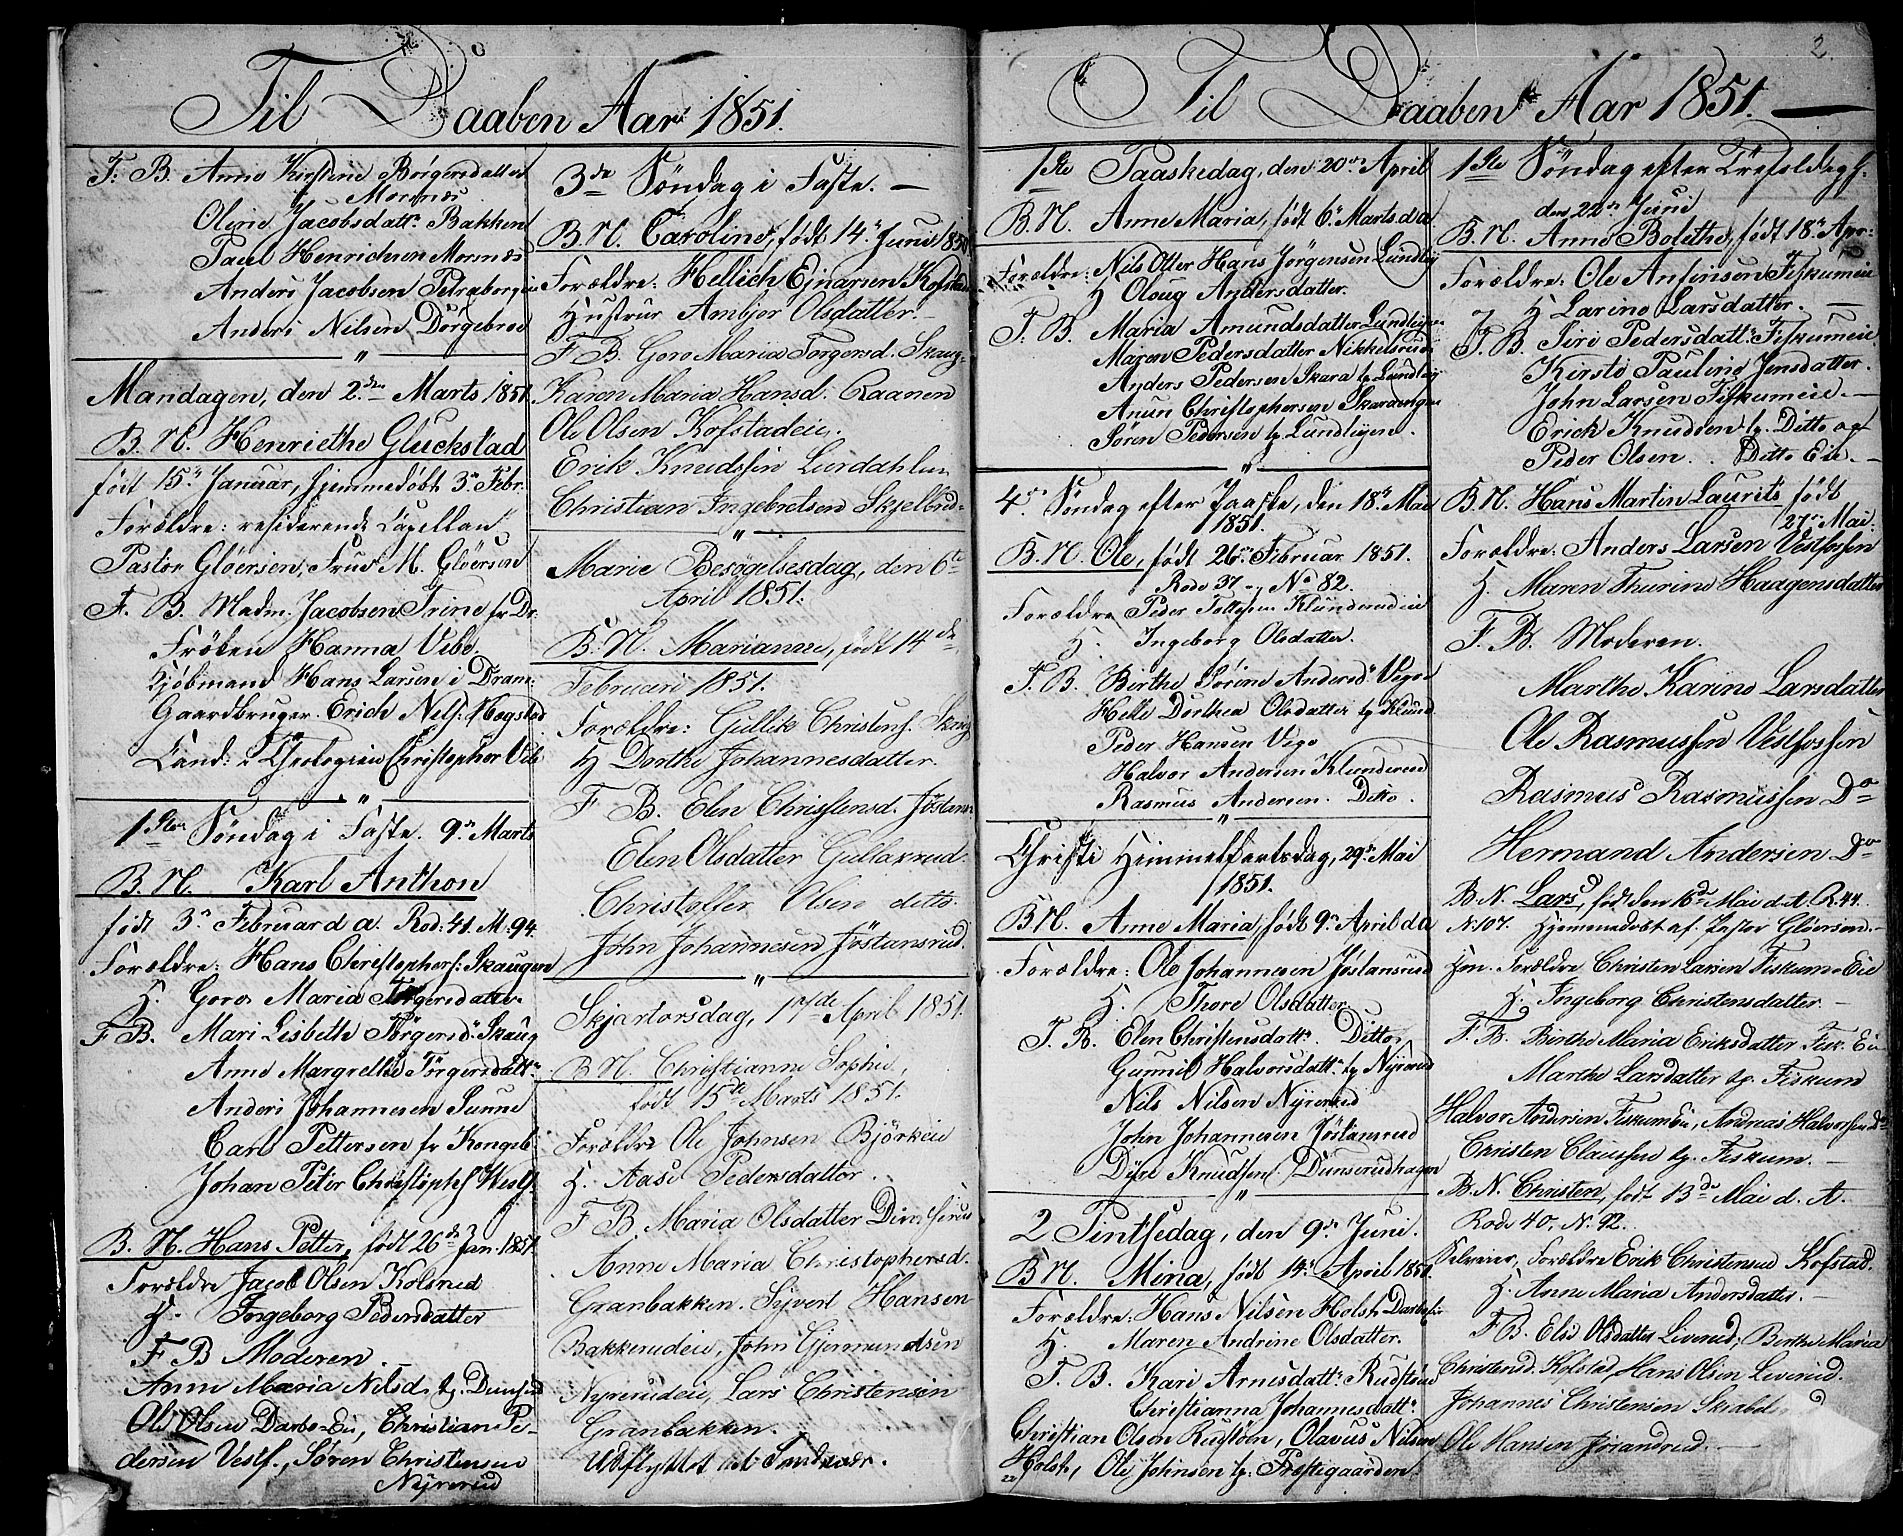 Til Daaben Aar 1851.
F. B. Anne Kirstine Börgersdatter
Mormoes
Oline Jacobsdattr. Bakken
Paul Henricksen Mormoes
Anders Jacobsen
Anders Nilsen Dörgebroe
"
Mandagen, den 2den Marts 1851
B. N. Henriethe Gluckstad
født 15de Januar, hjemmedøbt 3de Febr.
Forældre: residerende Capellan
Pastor Glöersen, Frue M. Glöersen
F. B. Madm. Jacobsen Trine fr Dr.
Fröken Hanna Vibe.
Kjöbmand Hans Larsen i Dram:
Gaardbruger Erich Nels: Hogstad
Cand: i Theologien Christopher Vibe
"
1ste Söndag i Faste. 9de Marts
B. N. Karl Anthon
født 3de Februar d a. Rod: 41. N: 94.
Forældre: Hans Christophers: Skaugen
H. Goro Maria Törgersdatter
F B. Mari Lisbeth Törgersd: Skaug
Anne Margrethe Törgersdattr.
Anders Johannesen Sunne
Carl Pettersen fr Kongsb.
Johan Peter Christophs Westf.
B. N. Hans Petter, født 26de Jan. 1851.
Forældre Jacob Olsen Kolsrud
H. Ingeborg Pedersdatter
F B Moderen.
Anne Maria Nilsd. tj. Dunserud
Ole Olsen Darbo-Eie, Christian Pe-
dersen Vestf., Sören Christensen
Nyrerud
3de Söndag i Faste. —
B. N. Caroline, født 14de Junii 1850
Forældre: Hellich Ejnarsen Kofstad
Hustrue Ambjor Olsdatter. —
F B. Goro Maria Torgersd. Skaug.
Karen Maria Hansd: Raanen
Ole Olsen Kofstadeie.
Erik Knudssen Lurdahlen
Christian Ingebretsen Skjelbred.
"
Marie Besøgelsesdag, den 6te
April 1851.
B. N. Marianne, født 14de
Februari 1851.
Forældre: Gullik Christens. Skoug
H Dorthe Johannesdatter.
F B. Elen Christensd. Jöstans.
Elen Olsdatter Gullaxrud.
Christoffer Olsen ditto.
John Johannesen Jöstansrud.
"
Skjærtorsdag, 17de April 1851.
B. N. Christianne Sophie,
født 15de Marts 1851.
Forældre Ole Johnsen Björkeie
H. Aase Pedersdatter.
F B Maria Olsdatter
Anne Maria Christophersd.
Granbakken. Syvert Hansen
Bakkerudeie, John Gjermundsen
Nyrerudeie, Lars Christensen
Granbakken.
Udflyttet til Sandsvær.
2.
Til Daaben Aar 1851. —
1ste Paaskedag, den 20de April
B. N. Anne Maria, født 6te Marts d a
Forældre: Nils Otter Hans Jörgensen Lundby
H Oloug Andersdatter.
F. B. Maria Amundsdatter Lundbyen
Maren Pedersdatter Nikkelsrud
Anders Pedersen Skara tj. Lundby
Anun Christophersen Skaraengen
Sören Pedersen tj. Lundbyen.
"
4de Söndag efter Paaske, den 18de Mai
1851.
B. N. Ole, født 26de Februar 1851.
Rode 37 —, No 82.
Forældre Peder Tollefsen Klunderudeie
H. Ingeborg Olsdatter.
F. B. Birthe Sörine Andersd. Vego
Helle Dorthea Olsdatter tj. Klund
Peder Hansen Vego
Halvor Andersen Klunderud
Rasmus Andersen. Ditto.
"
Christi Himmelfartsdag, 29de Mai
1851.
B N. Anne Maria, født 9de April d a
Forældre: Ole Johannesen Jöstansrud
H. Thore Olsdatter
F. B. Elen Christensdattr. Ditto
Gunnil Halvorsdattr. tj Nyrerud
Nils Nilsen Nyrerud
John Johannesen Jöstansrud
Dyre Knudsen Dunserudhagen
"
2 Pintsedag, den 9de Juni.
B N. Mina, født 14de April 1851.
Forældre: Hans Nilsen Holst Darboeie
H. Maren Andrine Olsdatter.
F. B. Kari Arnesdattr. Rudstuen
Christianna Johannesdattr.
Christian Olsen Rudstöen, Olavus Nilsen
Holst, Ole Johnsen tj: Præstegaarden.
1ste Söndag efter Trefoldigh.
den 22de Juni
B. N. Anne Bolethe, født 18de Apr:
Forældre: Ole Anfinsen Fiskumeie
H Larine Larsdatter. —
F. B. Siri Pedersdattr. Fiskumeie
Kirsto Pauline Jensdatter.
John Larsen Fiskumeie. —
Erich Knudsen tj. Ditto og
Peder Olsen. Ditto Eie. —
B. N. Hans Martin Laurits født
27de Mai.
Forældre: Anders Larsen Vestfossen
H. Maren Thurine Haagensdatter
F. B. Moderen.
Marthe Karine Larsdatter
Ole Rasmussen Vestfossen
Rasmus Rasmussen Do
Hermand Andersen Do
B. N. Lars, født den 16de Mai d. A. R. 44.
N. 107. Hjemmedöbt af Pastor Glöersen. —
Forældre Christen Larsen Fiskum-Eie
H. Ingeborg Christensdatter. —
F. B. Birthe Maria Eriksdatter Fisk. Eie
Marthe Larsdatter tj. Fiskum
Halvor Andersen FiskumEie, Andreas Halvorsen do
Christen Claussen tj. Fiskum. —
B. N. Christen, født 13de Mai d. A.
Rode 40, N. 92.
Selveier, Forældre Erik Christensen Kofstad.
H. Anne Maria Andersdatter. —
F B. Else Olsdatter Liverud, Berthe Maria
Christensd. Kofstad, Hans Olsen Liverud.
Johannes Christensen
Ole Hansen Jörandrud. —